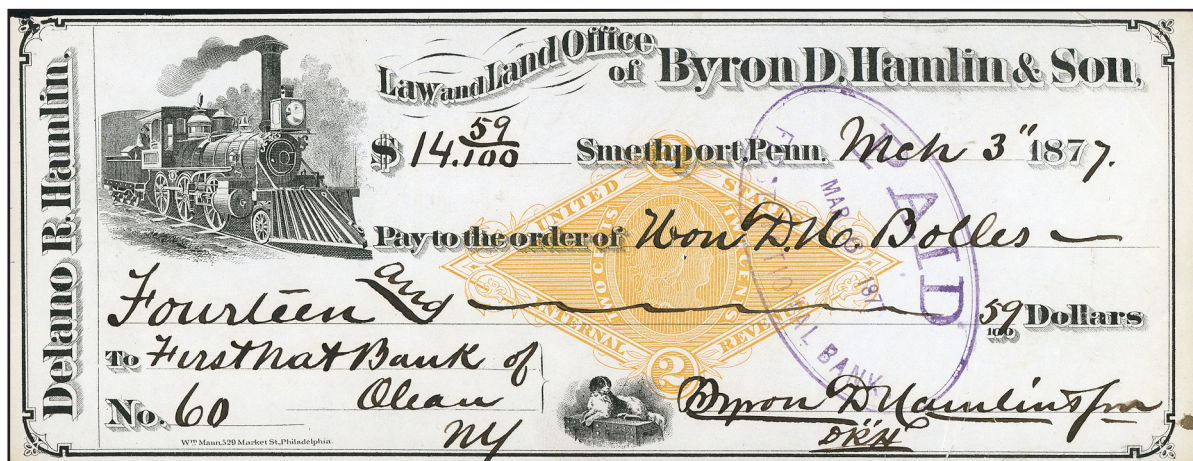 Delano R. Hamlin.
Law and Land Office
of Byron D. Hamlin & Son,
$ 14.59/100 Smethport, Penn. Mch 3" 1877.
Pay to the order of Hon D. H. Bolles
Fourteen and 59/100 Dollars
To First Nat Bank of
Olean
NY
No. 60
Byron D Hamlin & son
DRH
Wm Mann, 529 Market St., Philadelphia.
UNITED STATES
INTERNAL REVENUE
TWO CENTS
2
PAID
MAR 3 187
NATIONAL BANK